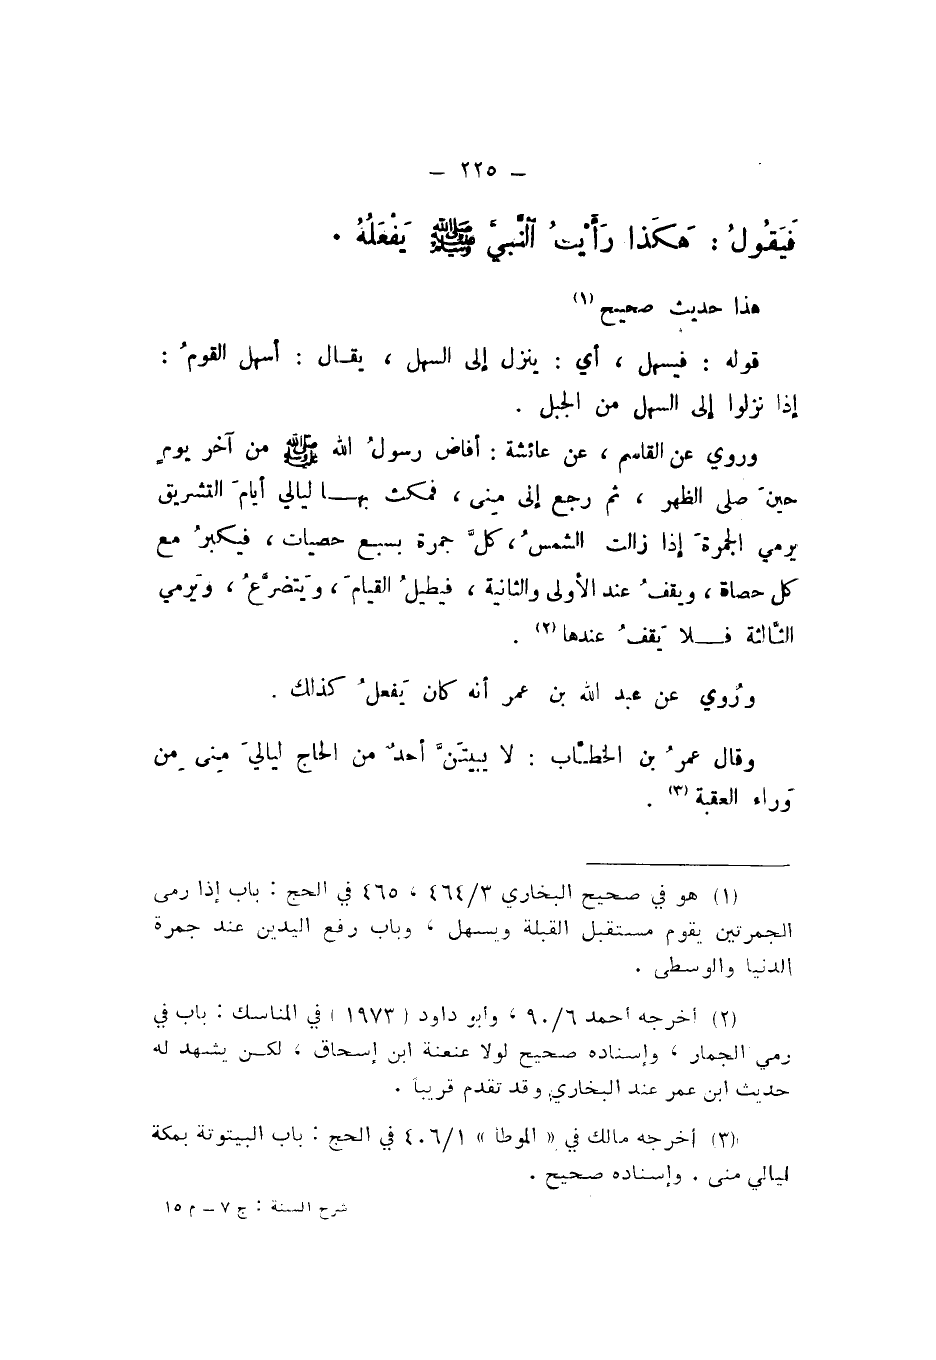 – ٢٢٥ –
فَيَقُولُ : هَكَذا رَأَيْتُ النَّبيَّ ﷺ يَفْعَلُهُ .
هذا حديث صحيح (١)
قوله : فيسهل ، أي : ينزل إلى السهل ، يقــال : أسهل القومُ :
إذا نزلوا إلى السهل من الجبل .
وروي عن القاسم ، عن عائشة : أفاض رسولُ الله ﷺ من آخر يومٍ
حينَ صلى الظهر ، ثم رجع إلى مِنى ، فمكث بهــا ليالي أيامَ التشريق
يرمي الجمرةَ إذا زالت الشمسُ ، كلَّ جمرة بسبع حصيات ، فيكبرُ مع
كل حصاة ، ويقفُ عند الأولى والثانية ، فيطيلُ القيامَ ، ويَتضرَّعُ ، ويَرمي
الثَّالثة فــلا يَقفُ عندها (٢) .
ورُوي عن عبد الله بن عمر أنه كان يَفعلُ كذلك .
وقال عمرُ بن الخطَّاب : لا يبيتَنَّ أحدٌ من الحاج لياليَ مِنى مِن
وَراء العقبة (٣) .
(١) هو في صحيح البخاري ٤٦٤/٣ ، ٤٦٥ في الحج : باب إذا رمى
الجمرتين يقوم مستقبل القبلة ويسهل ، وباب رفع اليدين عند جمرة
الدنيا والوسطى .
(٢) أخرجه أحمد ٩٠/٦ ، وأبو داود ( ١٩٧٣ ) في المناسك : باب في
رمي الجمار ، وإسناده صحيح لولا عنعنة ابن إسحاق ، لكــن يشهد له
حديث ابن عمر عند البخاري وقد تقدم قريباً .
(٣) أخرجه مالك في « الموطأ » ٤٠٦/١ في الحج : باب البيتوتة بمكة
ليالي منى . وإسناده صحيح .
شرح السنة : ج ٧ – م ١٥